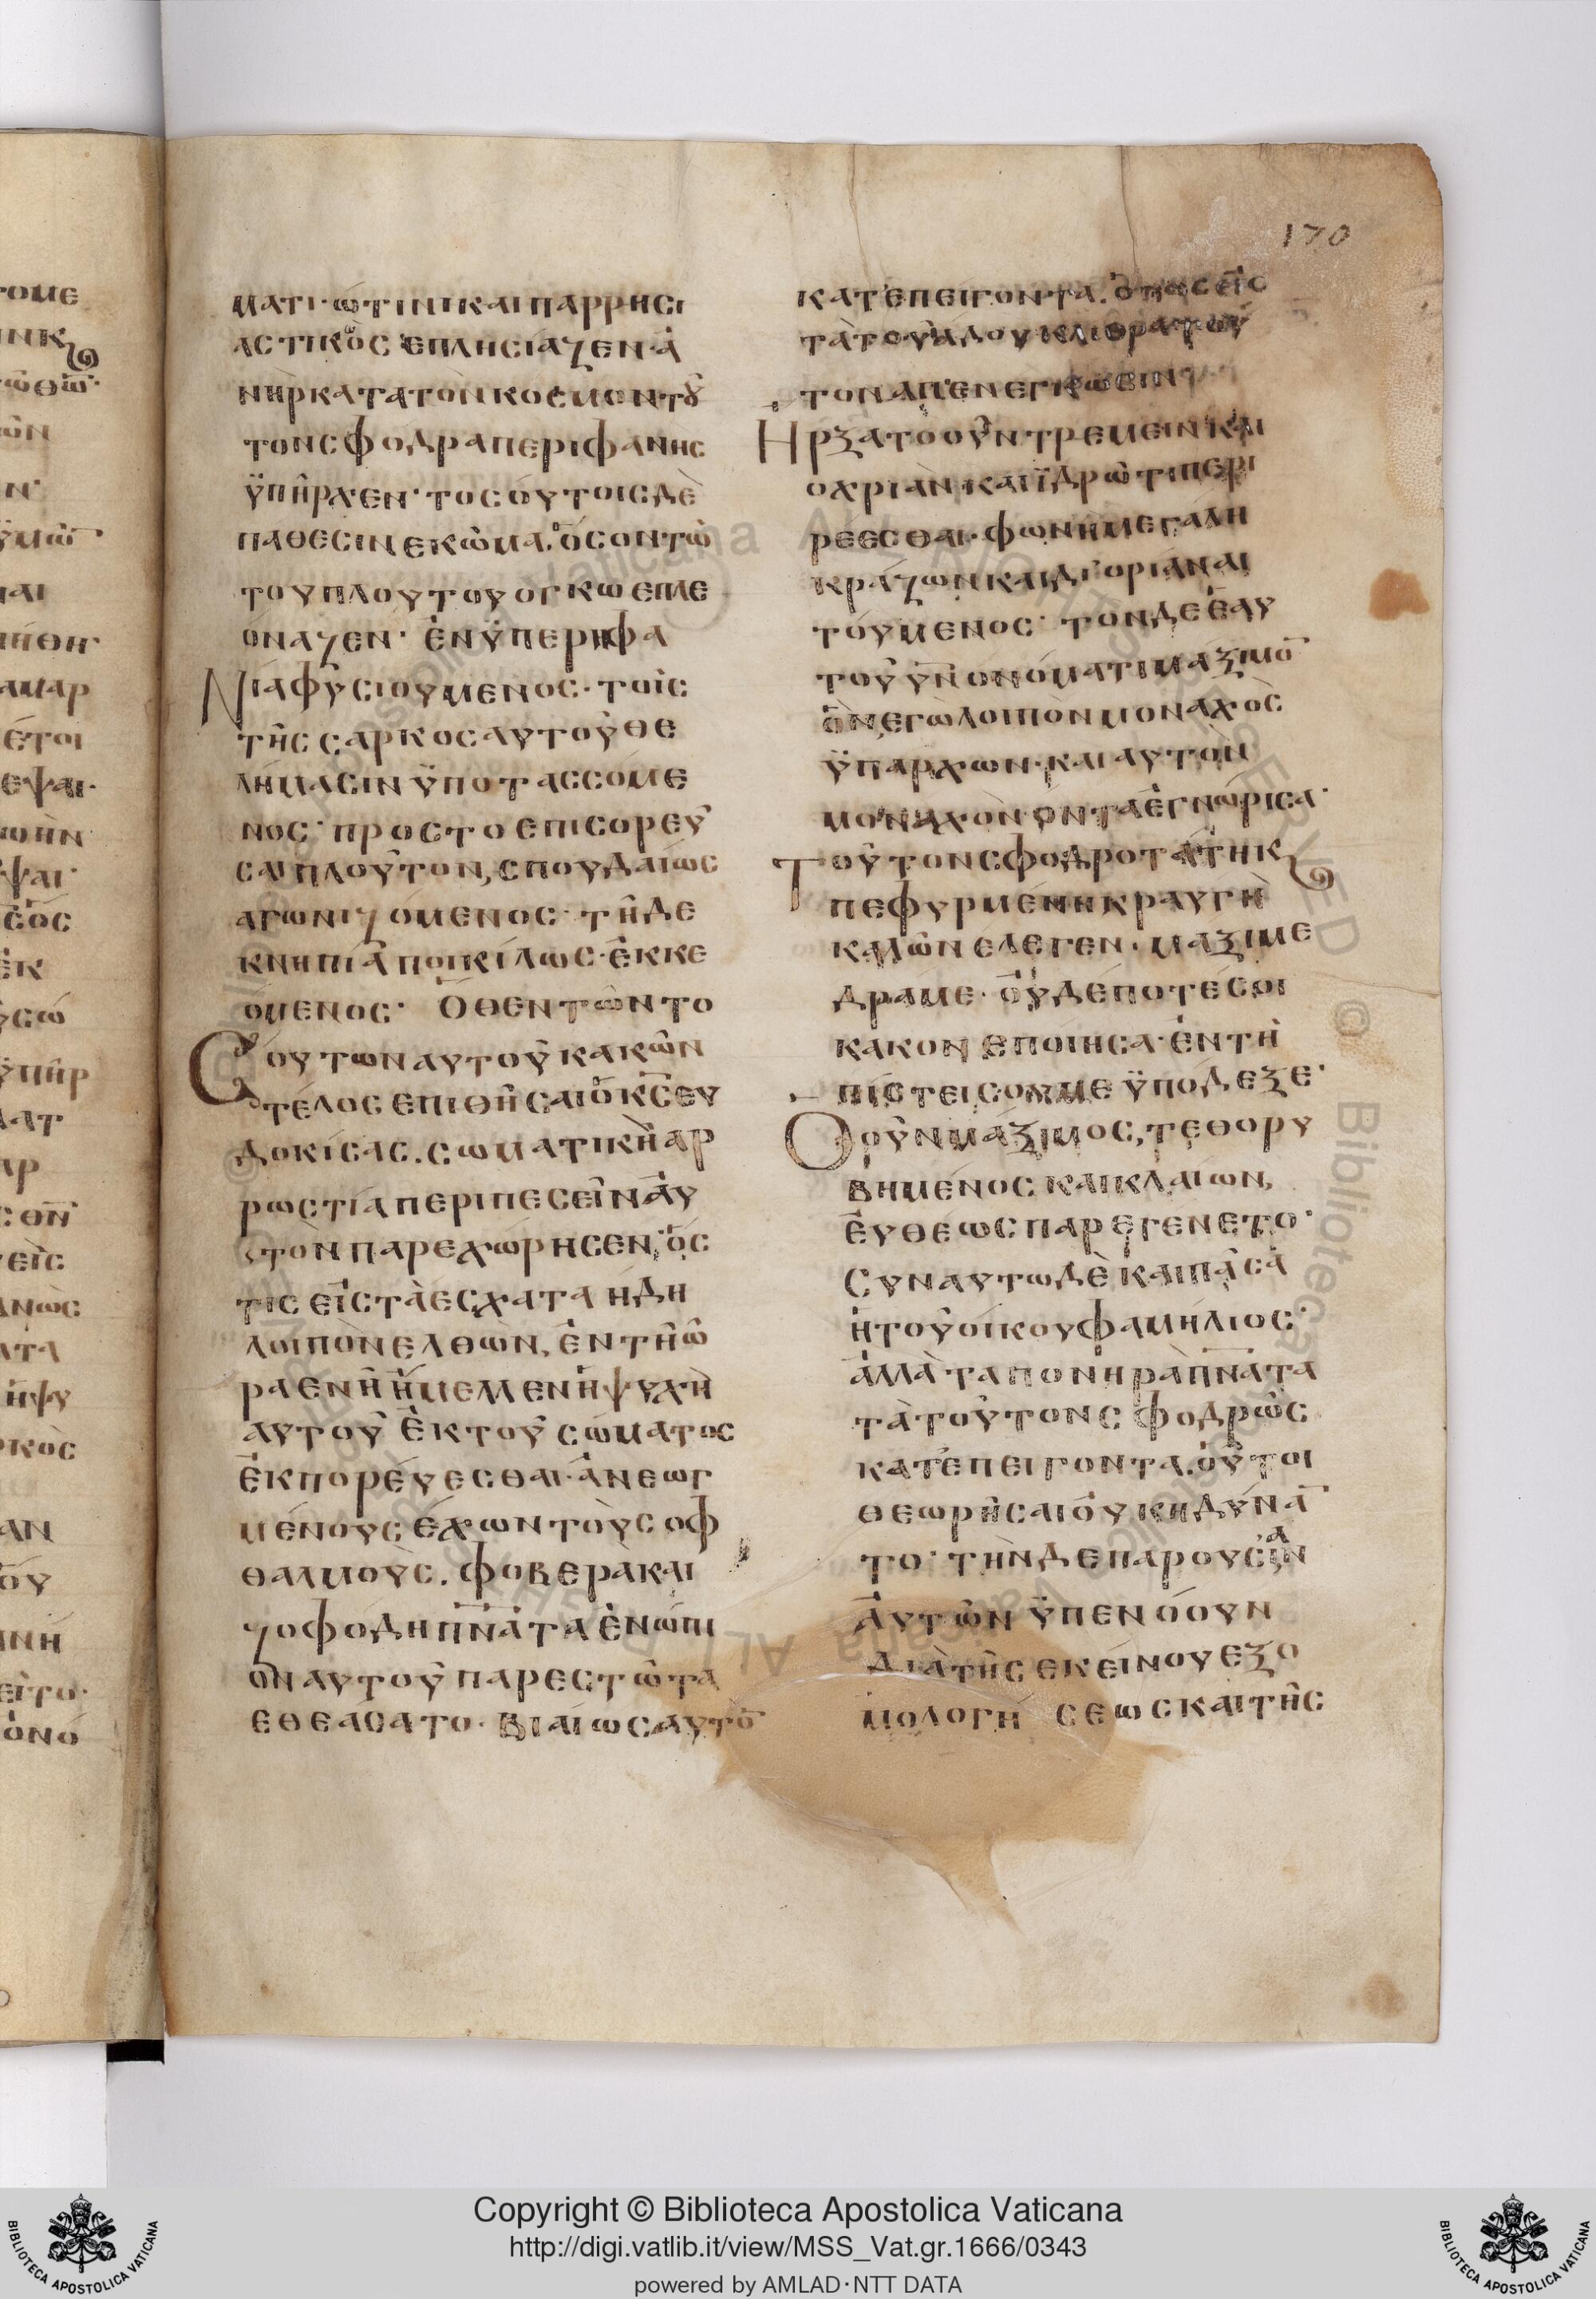 170
ματι· ὧτινι και παρρησι
αστικὸς ἐπλησίαζεν· ἀ
νὴρ κατα τὸν κοσμον τοῦ
τον σφοδρα περιφανης
ϋπῆρχεν· τοσούτοις δὲ
παθεσιν εκὼμα. ὅσον τῶ
του πλουτου ογκω επλε
όναζεν· ἐν ϋπερηφα
Νία φυσιουμενος· τοῖς
τῆς σαρκος αυτοῦ θε
λήμασιν ϋποτασσομε
νος· προς το επισορεῦ
σαι πλοῦτον, σπουδαίως
αγωνιζόμενος· τῆ δε
κνηπία ποικίλως· ἐκκε
όμενος· Ὅθεν τῶν το
Ϲούτων αυτοῦ κακῶν
τέλος επιθῆσαι ὁ κ̅ς̅ ευ
δοκίσας. σωματικὴ αρ
ρωστία περιπεσεῖν ἀυ
τὸν παρεχώρησεν, ὅς
τις εἰς τὰ έσχατα ήδη
λοιπὸν ελθὼν, ἐν τῆ ὥ
ρα εν ῆ ήμελλεν ἡ ψυχὴ
αυτοῦ ἐκ τοῦ σώματος
ἐκπορεύεσθαι· ἀνεωγ
μένους έχων τοὺς οφ
θαλμοὺς. φοβερὰ και
ζοφόδη π̅ν̅ατα ἐνώπι
ον αυτοῦ παρεστῶτα
εθεάσατο· βιαίως αυτο̅
κατεπείγοντα. ὅπως εἰσ
τὰ τοῦ άδου κλιθρα τοῦ
τον απενεγκωσιν
Ηρξατο οῦν τρεμειν και
οχριὰν και ϊδρῶτι περι
ρεεσθαι· φωνη μεγαλη
κράζων και διγοριάναι
τούμενος· τον δε ἑαυ
τοῦ υ̅ν̅ ονόματι μάξιμο̅
ὃν εγω λοιπὸν μοναχὸς
ϋπαρχων· και αυτὸν
μοναχὸν όντα ἐγνώρισα·
Τοῦτον σφοδροτάτη κ̣
πεφυρμένη κραυγῆ
καλῶν έλεγεν. μαξιμε
δραμε· ουδέποτέ σοι
κακον εποιησα· ἐν τῆ
πίστει σου με ϋποδεξε·
Ο οῦν μάξιμος, τεθορυ
βημένος και κλαίων,
ἐυθέως παρεγενετο·
Ϲυν αυτω δὲ και πᾶσα
ἡ τοῦ οίκου φαμήλιος·
ἀλλὰ τα πονηρὰ π̅ν̅ατα
τὰ τοῦτον σφοδρῶς
κατεπειγοντα. οὗτοι
θεωρῆσαι οὐκ ηδύνα̅
το· τὴν δε παρουσίαν
ἀυτῶν ϋπενόουν
διὰ τῆς εκείνου εξο
μολογήσεως και τῆς
Copyright © Biblioteca Apostolica Vaticana
http://digi.vatlib.it/view/MSS_Vat.gr.1666/0343
powered by AMLAD·NTT DATA
BIBLIOTECA APOSTOLICA VATICANA
BIBLIOTECA APOSTOLICA VATICANA